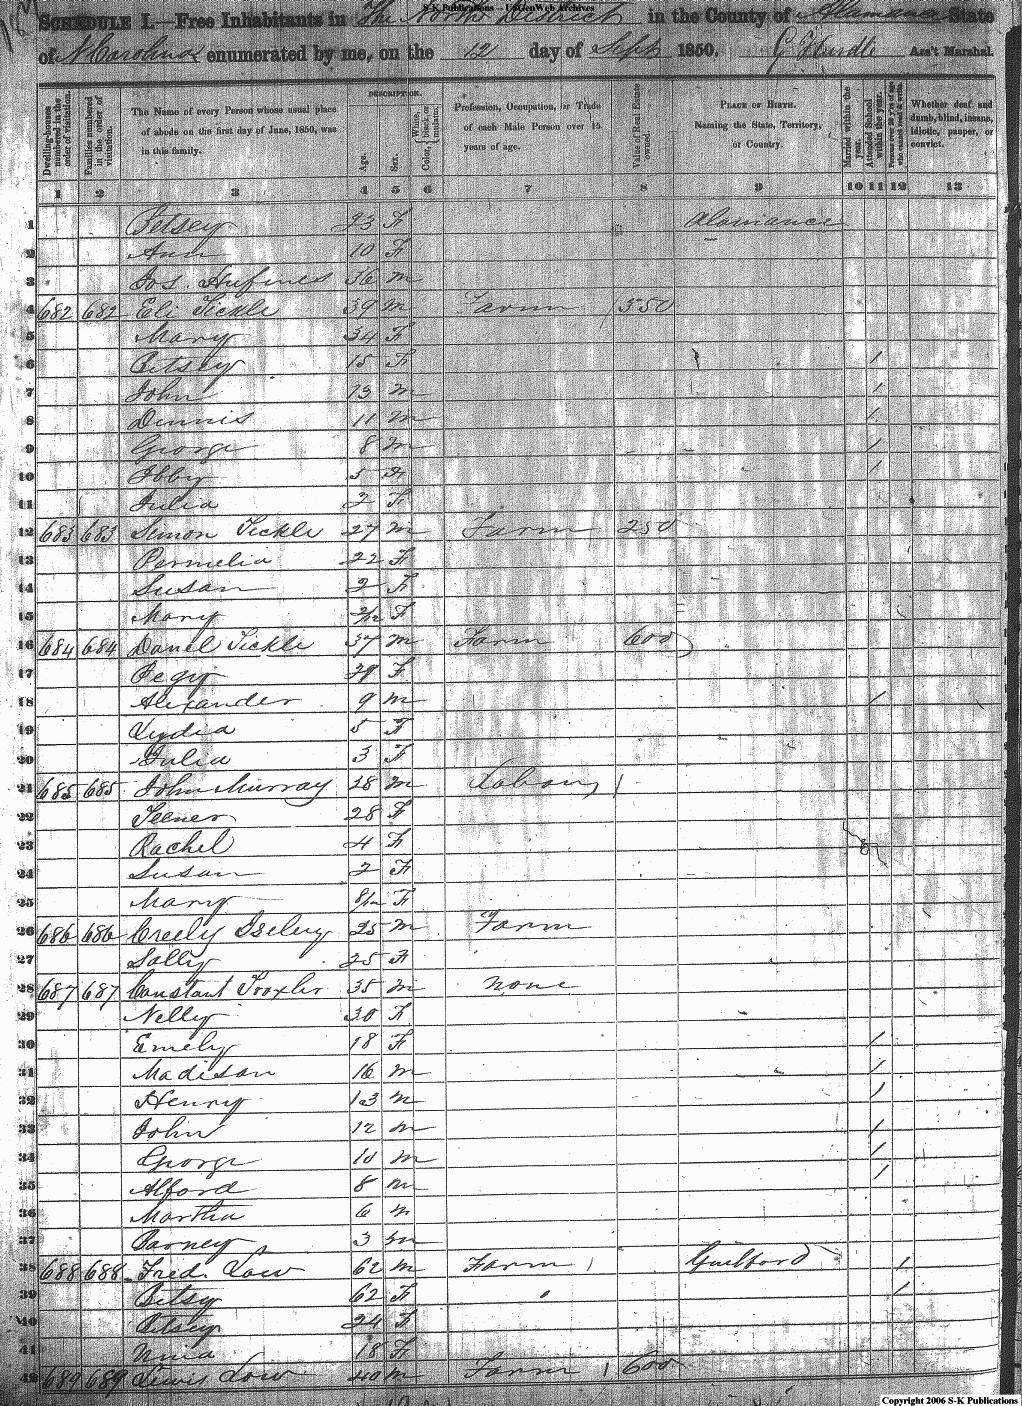 S-K Publications – USGenWeb Archives
SCHEDULE I.—Free Inhabitants in The North District in the County of Alamance State
of N Carolina enumerated by me, on the 12 day of Sept 1850. Ass't Marshal.
Dwelling-houses numbered in the order of visitation. Families numbered in the order of visitation. The Name of every Person whose usual place of abode on the first day of June, 1850, was in this family. DESCRIPTION. Age. Sex. Color, White, black, or mulatto. Profession, Occupation, or Trade of each Male Person over 15 years of age. Value of Real Estate owned. PLACE OF BIRTH. Naming the State, Territory, or Country. Married within the year. Attended School within the year. Persons over 20 y'rs of age who cannot read & write. Whether deaf and dumb, blind, insane, idiotic, pauper, or convict.
1 2 3 4 5 6 7 8 9 10 11 12 13
1 Betsey 23 F Alamance
2 Ann 10 F
3 Jos. Hufines 36 m
4 682 682 Eli Tickle 39 m Farm 550
5 Mary 34 F
6 Betsey 15 F /
7 John 13 m /
8 Dennis 11 m /
9 George 8 m /
10 Ibby 5 F /
11 Julia 2 F
12 683 683 Simon Tickle 27 m Farm 250
13 Permelia 22 F
14 Susan 2 F
15 Mary 2/12 F
16 684 684 Daniel Tickle 37 m Farm 600
17 Pegy 29 F
18 Alexander 9 m /
19 Lydia 5 F
20 Julia 3 F
21 685 685 John Murray 28 m
22 28 F
23 Rachel 4 F
24 Susan 2 F
25 Mary 8/12 F
26 686 686 Creely Iseley 25 m Farm
27 Sally 25 F
28 687 687 Constant Troxler 35 m none
29 Nelly 30 F
30 Emely 18 F /
31 Madison 16 m /
32 Henry 13 m /
33 John 12 m /
34 George 10 m /
35 Alford 8 m /
36 Martha 6 m
37 Barney 3 m
38 688 688 Fred. Low 62 m Farm Guilford /
39 Betsy 62 F /
40 Betsey 24 F
41 Nina 18 F
42 689 689 Lewis Low 40 m Farm 600
Copyright 2006 S-K Publications